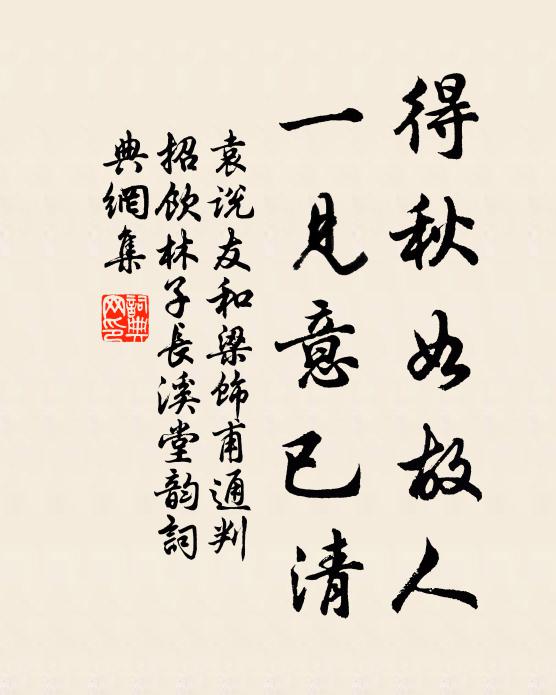 得秋如故人
一見意已清
袁說友和梁飾甫通判
招飲林子長溪堂韵詞
典網集
詞典
网印